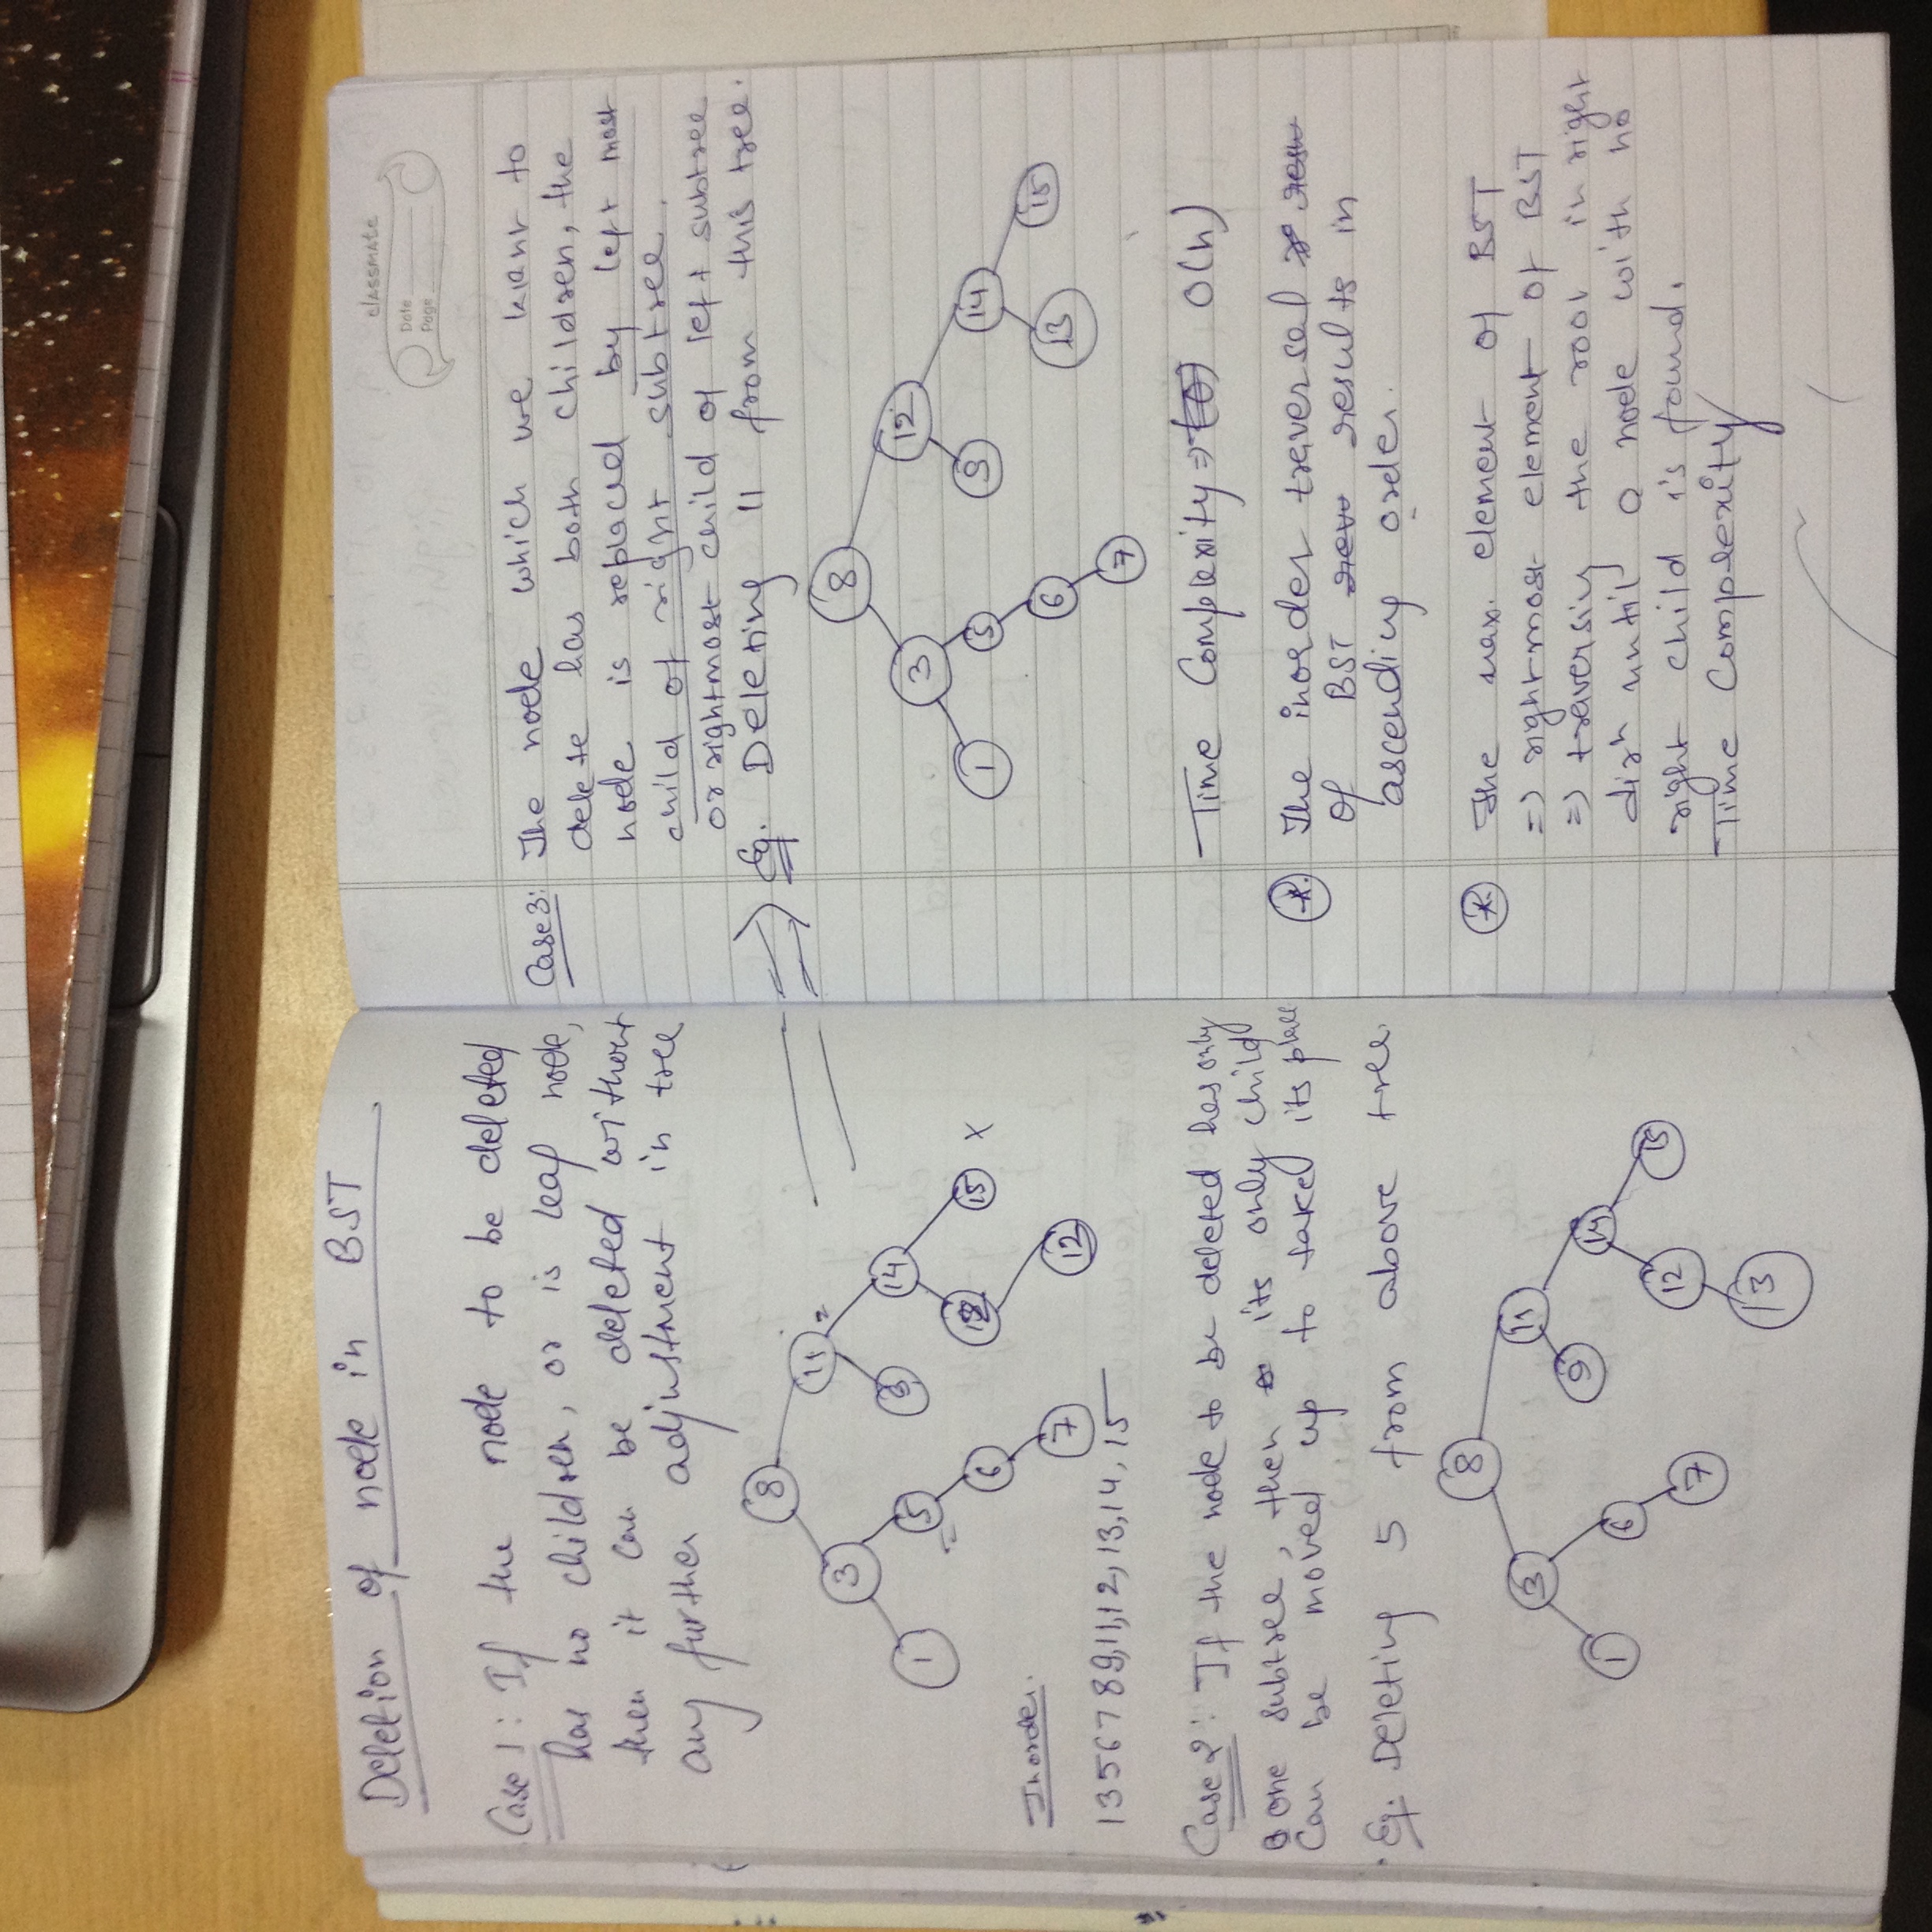 Deletion of node in BST
Case 1: If the node to be deleted
has no children, or is leaf node,
then it can be deleted without
any further adjustment in tree
8
3
11
1
5
9
14
6
15
7
12
Inorder:
1 3 5 6 7 8 9, 11, 12, 13, 14, 15
Case 2: If the node to be deleted has only
one subtree, then its only child
can be moved up to taked its place
Eg. Deleting 5 from above tree.
8
3
11
1
6
9
14
7
12
15
13
classmate
Date
Page
Case 3: The node which we want to
delete has both children, the
node is replaced by left most
child of right subtree.
or rightmost child of left subtree
Eg. Deleting 11 from this tree.
8
3
12
1
5
9
14
6
13
15
7
Time Complexity => O(h)
* The inorder traversal
of BST results in
ascending order.
* The max. element of BST
=> rightmost element of BST
=> traversing the root in right
dirn until a node with no
right child is found.
Time Complexity